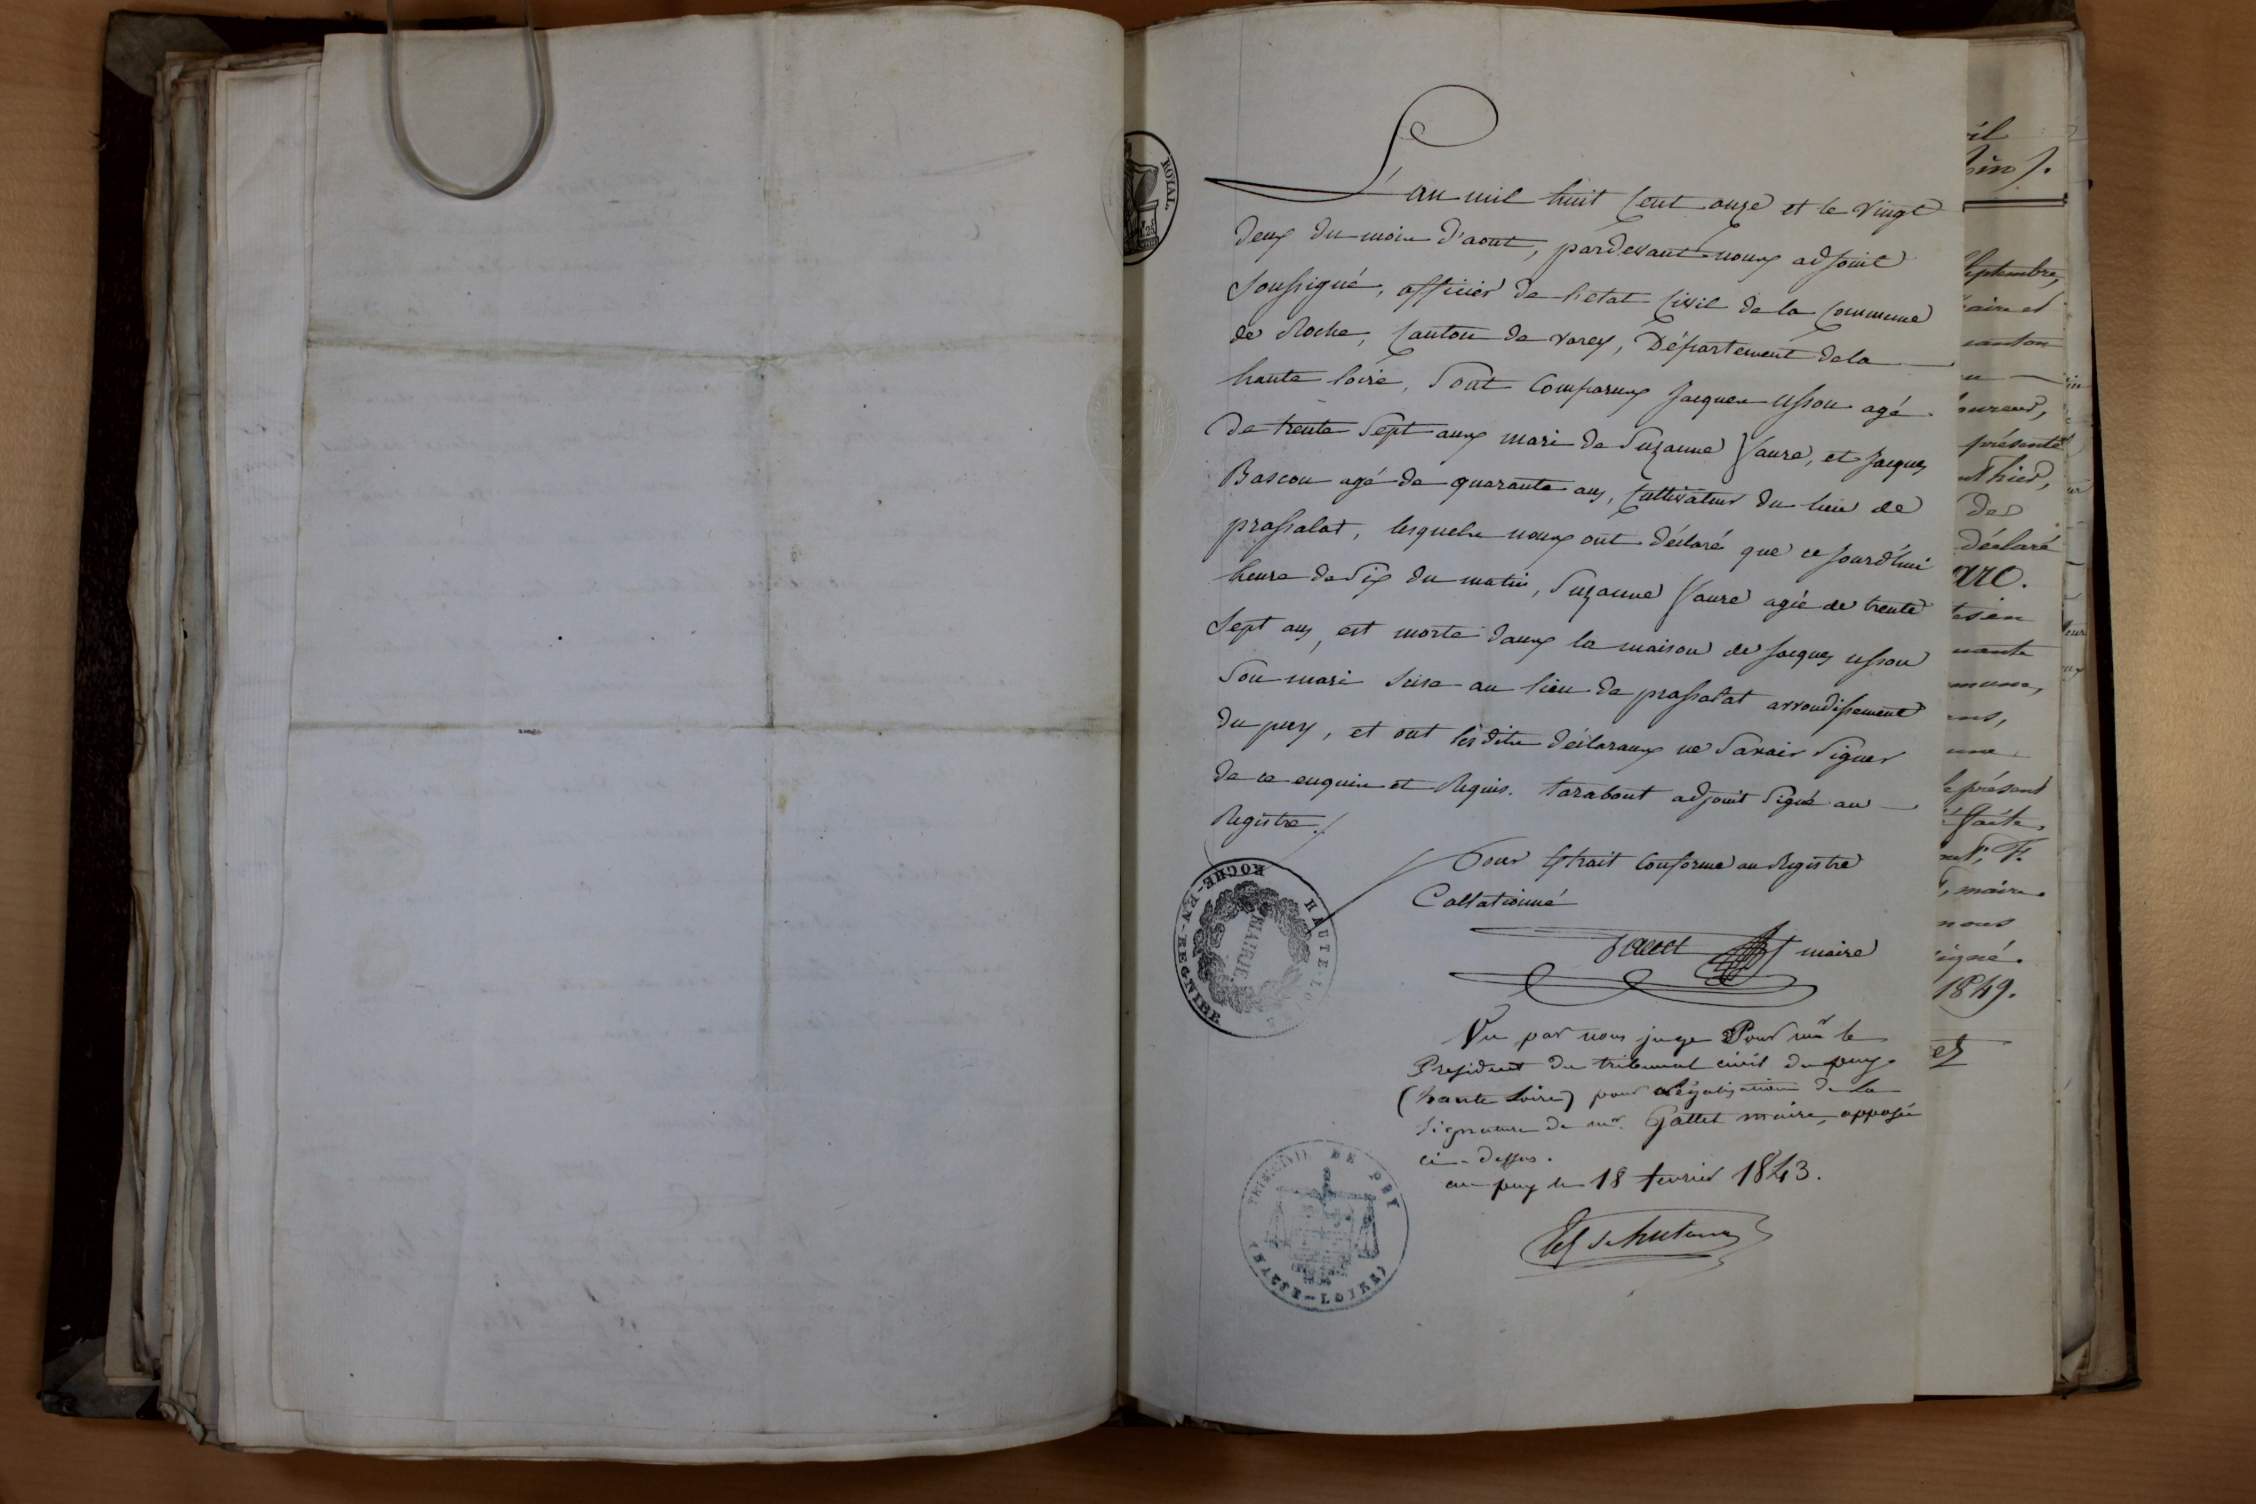 ROYAL.
L'an mil huit Cent onze et le Vingt
deux du mois d'aout, pardevant nous adjoint
Soussigné, officier de letat Civil de la Commune
de Roche, Canton de vorey, Département dela
haute loire, Sont Comparus Jacques usson agé
de trente Sept ans mari de Suzanne faure, et Jacques
Bascou agé de quarante ans, Cultivateur du lieu de
prassalat, lesquels nous ont déclaré que ce jourd'hui
heure de Six du matin, Suzanne faure agée de trente
Sept ans, est morte dans la maison de Jacques usson
Son mari Sise au lieu de prassalat arrondissement
du puy, et ont lesdits déclarans ne Savoir Signer
de ce enquis et Requis. tarabout adjoint Signé au
Registre./.
Pour Extrait Conforme au Registre
Collationné
gallet maire
ROCHE-EN-REGNIER
HAUTE-LOIRE
MAIRIE
Vu par nous juge Pour mr le
President du tribunal civil du puy
(haute Loire) pour légalisation de la
signature de mr. Gallet maire, apposée
ci-dessus.
au puy le 18 fevrier 1843.
TRIB. CIVIL DE PUY
(HAUTE-LOIRE)
septembre,
canton
présenté
hier,
des
déclaré
le présent
faite.
maire
nous
signé.
1849.